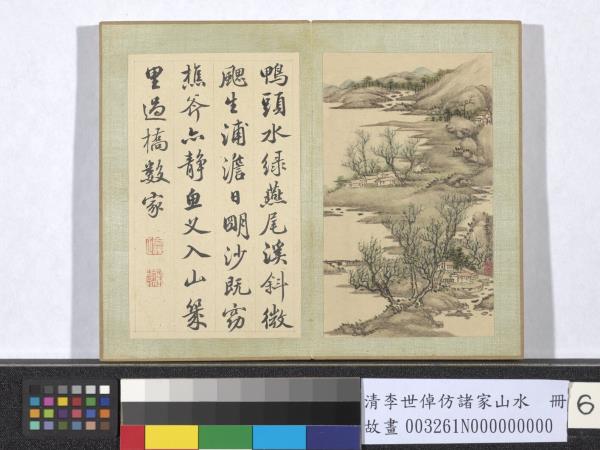 鴨頭水緑燕尾溪斜微
颸生浦澹日明沙既窈
樵斧亦靜魚叉入山幾
里過橋數家
清李世倬仿諸家山水 冊
故畫 003261N000000000
6